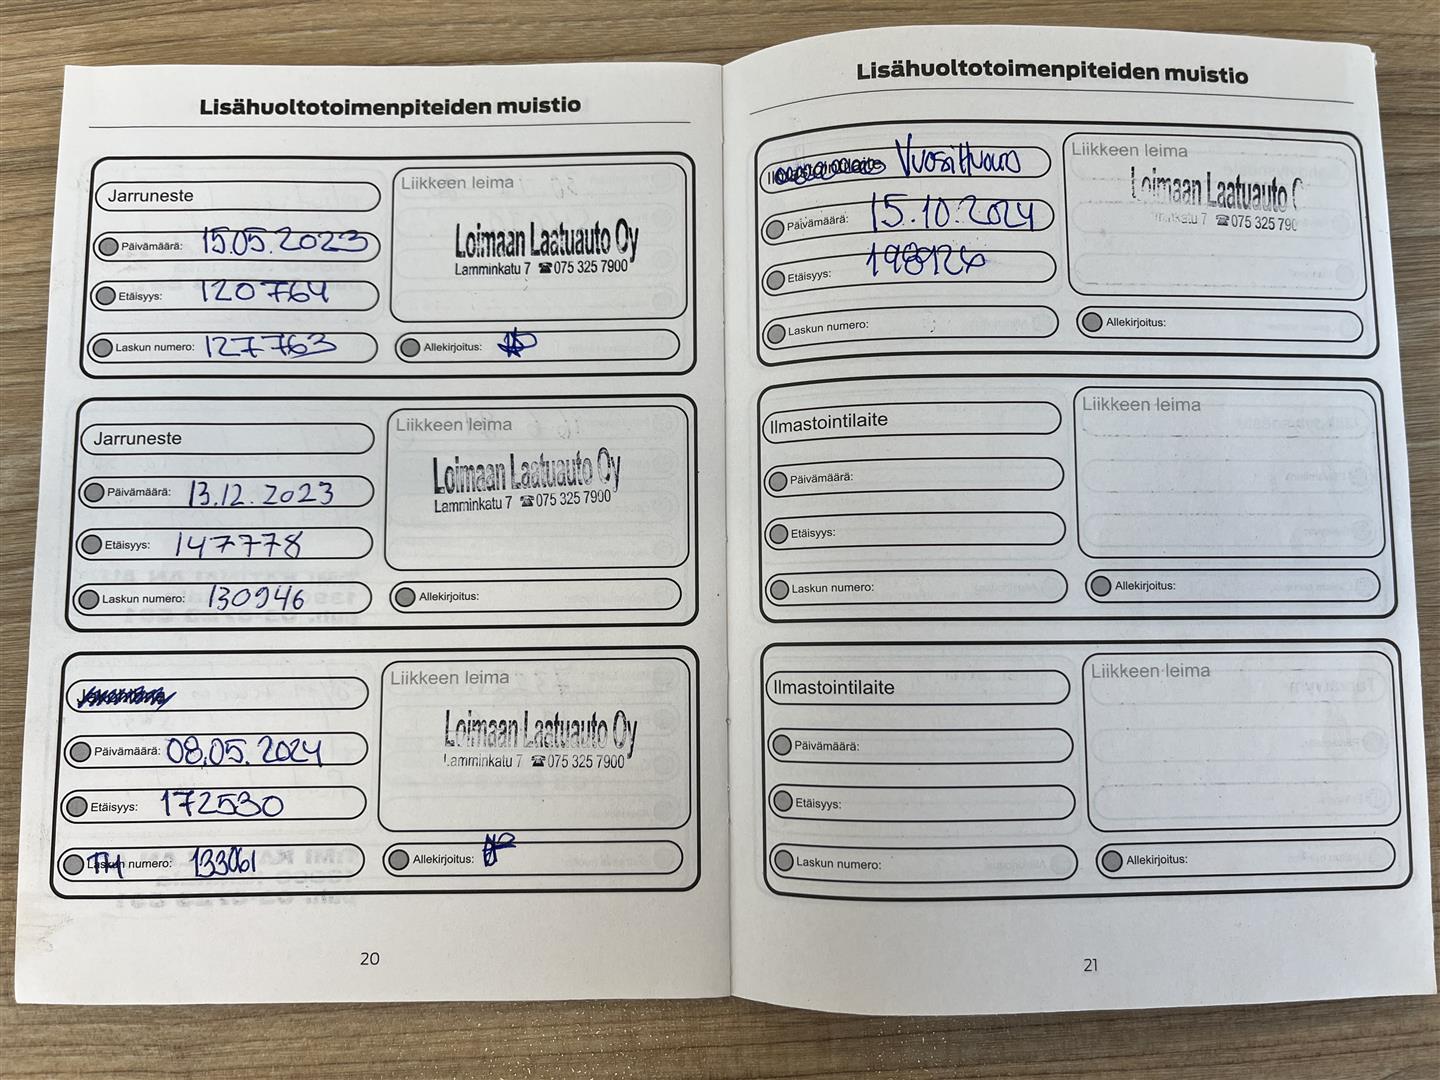 Lisähuoltotoimenpiteiden muistio
Jarruneste
Päivämäärä: 15.05.2023
Etäisyys: 120764
Laskun numero: 127763
Liikkeen leima
Loimaan Laatuauto Oy
Lamminkatu 7 ☎075 325 7900
Allekirjoitus:
Jarruneste
Päivämäärä: 13.12.2023
Etäisyys: 147778
Laskun numero: 130946
Liikkeen leima
Loimaan Laatuauto Oy
Lamminkatu 7 ☎075 325 7900
Allekirjoitus:
Päivämäärä: 08.05.2024
Etäisyys: 172530
TH Laskun numero: 133061
Liikkeen leima
Loimaan Laatuauto Oy
Lamminkatu 7 ☎075 325 7900
Allekirjoitus:
20
Lisähuoltotoimenpiteiden muistio
Päivämäärä: 15.10.2024
Etäisyys:
Laskun numero:
Liikkeen leima
Loimaan Laatuauto
7 ☎075 325 790
Allekirjoitus:
Ilmastointilaite
Päivämäärä:
Etäisyys:
Laskun numero:
Liikkeen leima
Allekirjoitus:
Ilmastointilaite
Päivämäärä:
Etäisyys:
Laskun numero:
Liikkeen leima
Allekirjoitus:
21